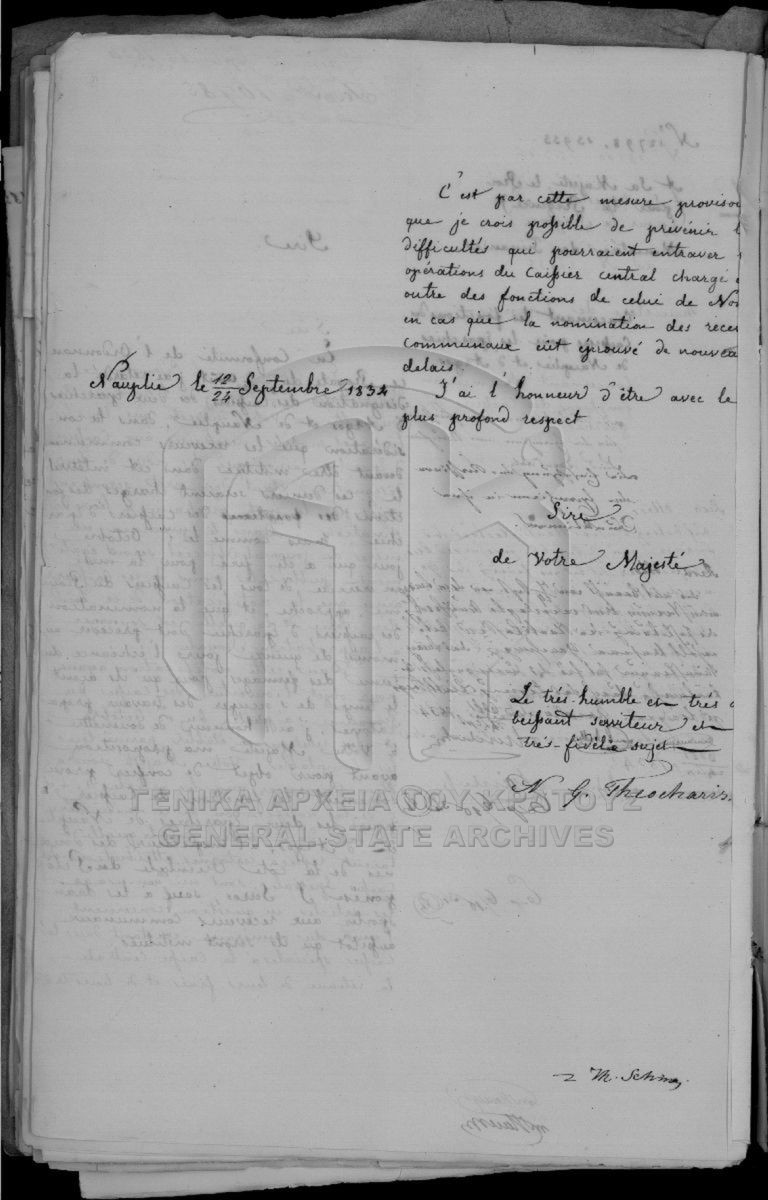 C'est par cette mesure provisoi
que je crois possible de prévenir l
difficultés qui pourraient entraver
opérations du Caissier central chargé
outre des fonctions de celui de
en cas que la nomination des rece
Communaux eût éprouvé de nouveau
delais.
Nauplie le 12/24 Septembre 1834
J'ai l'honneur d'être avec le
plus profond respect
Sire
de Votre Majesté
Le très humble et très o
beissant serviteur et
très-fidèle sujet
N. G. Theocharis.
ΓΕΝΙΚΑ ΑΡΧΕΙΑ ΤΟΥ ΚΡΑΤΟΥΣ
GENERAL STATE ARCHIVES